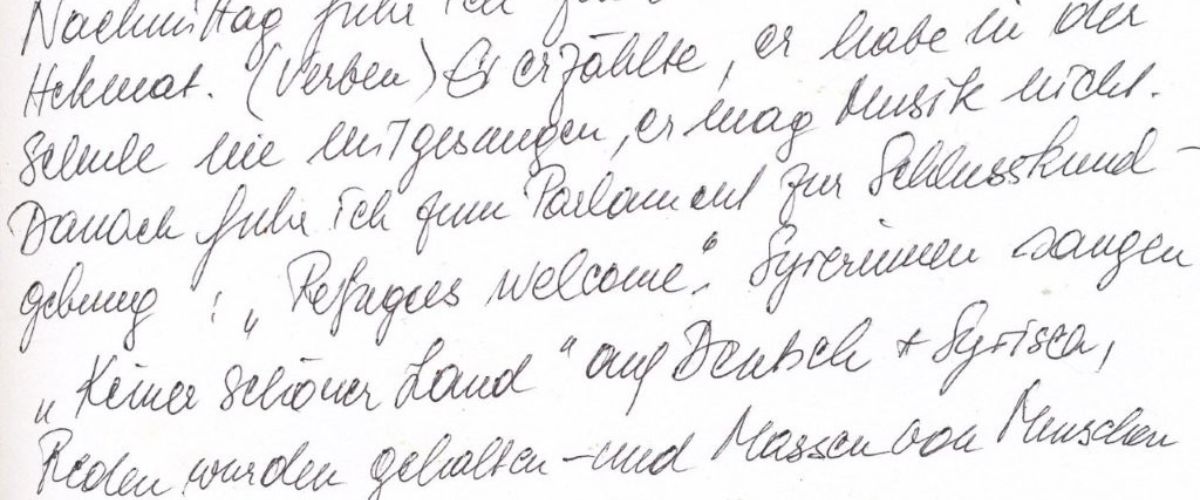 Nachmittag fuhr ich
Hekmat. (Verben) Er erzählte, er habe in der
Schule nie mitgesungen, er mag Musik nicht.
Danach fuhr ich zum Parlament zur Schlusskund-
gebung: „Refugees welcome“. Syrerinnen sangen
„Keiner schöner Land“ auf Deutsch + Syrisch,
Reden wurden gehalten – und Massen von Menschen